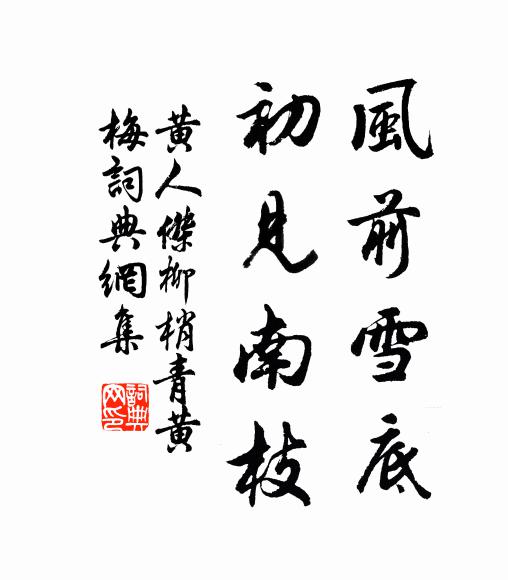 風前雪底
初見南枝
黃人傑柳梢青黃
梅詞典網集
詞典
网印